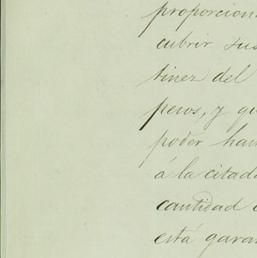 proporcion
cubrir sus
tinez del
pesos, y qu
poder han
á la citada
cantidad
está garan